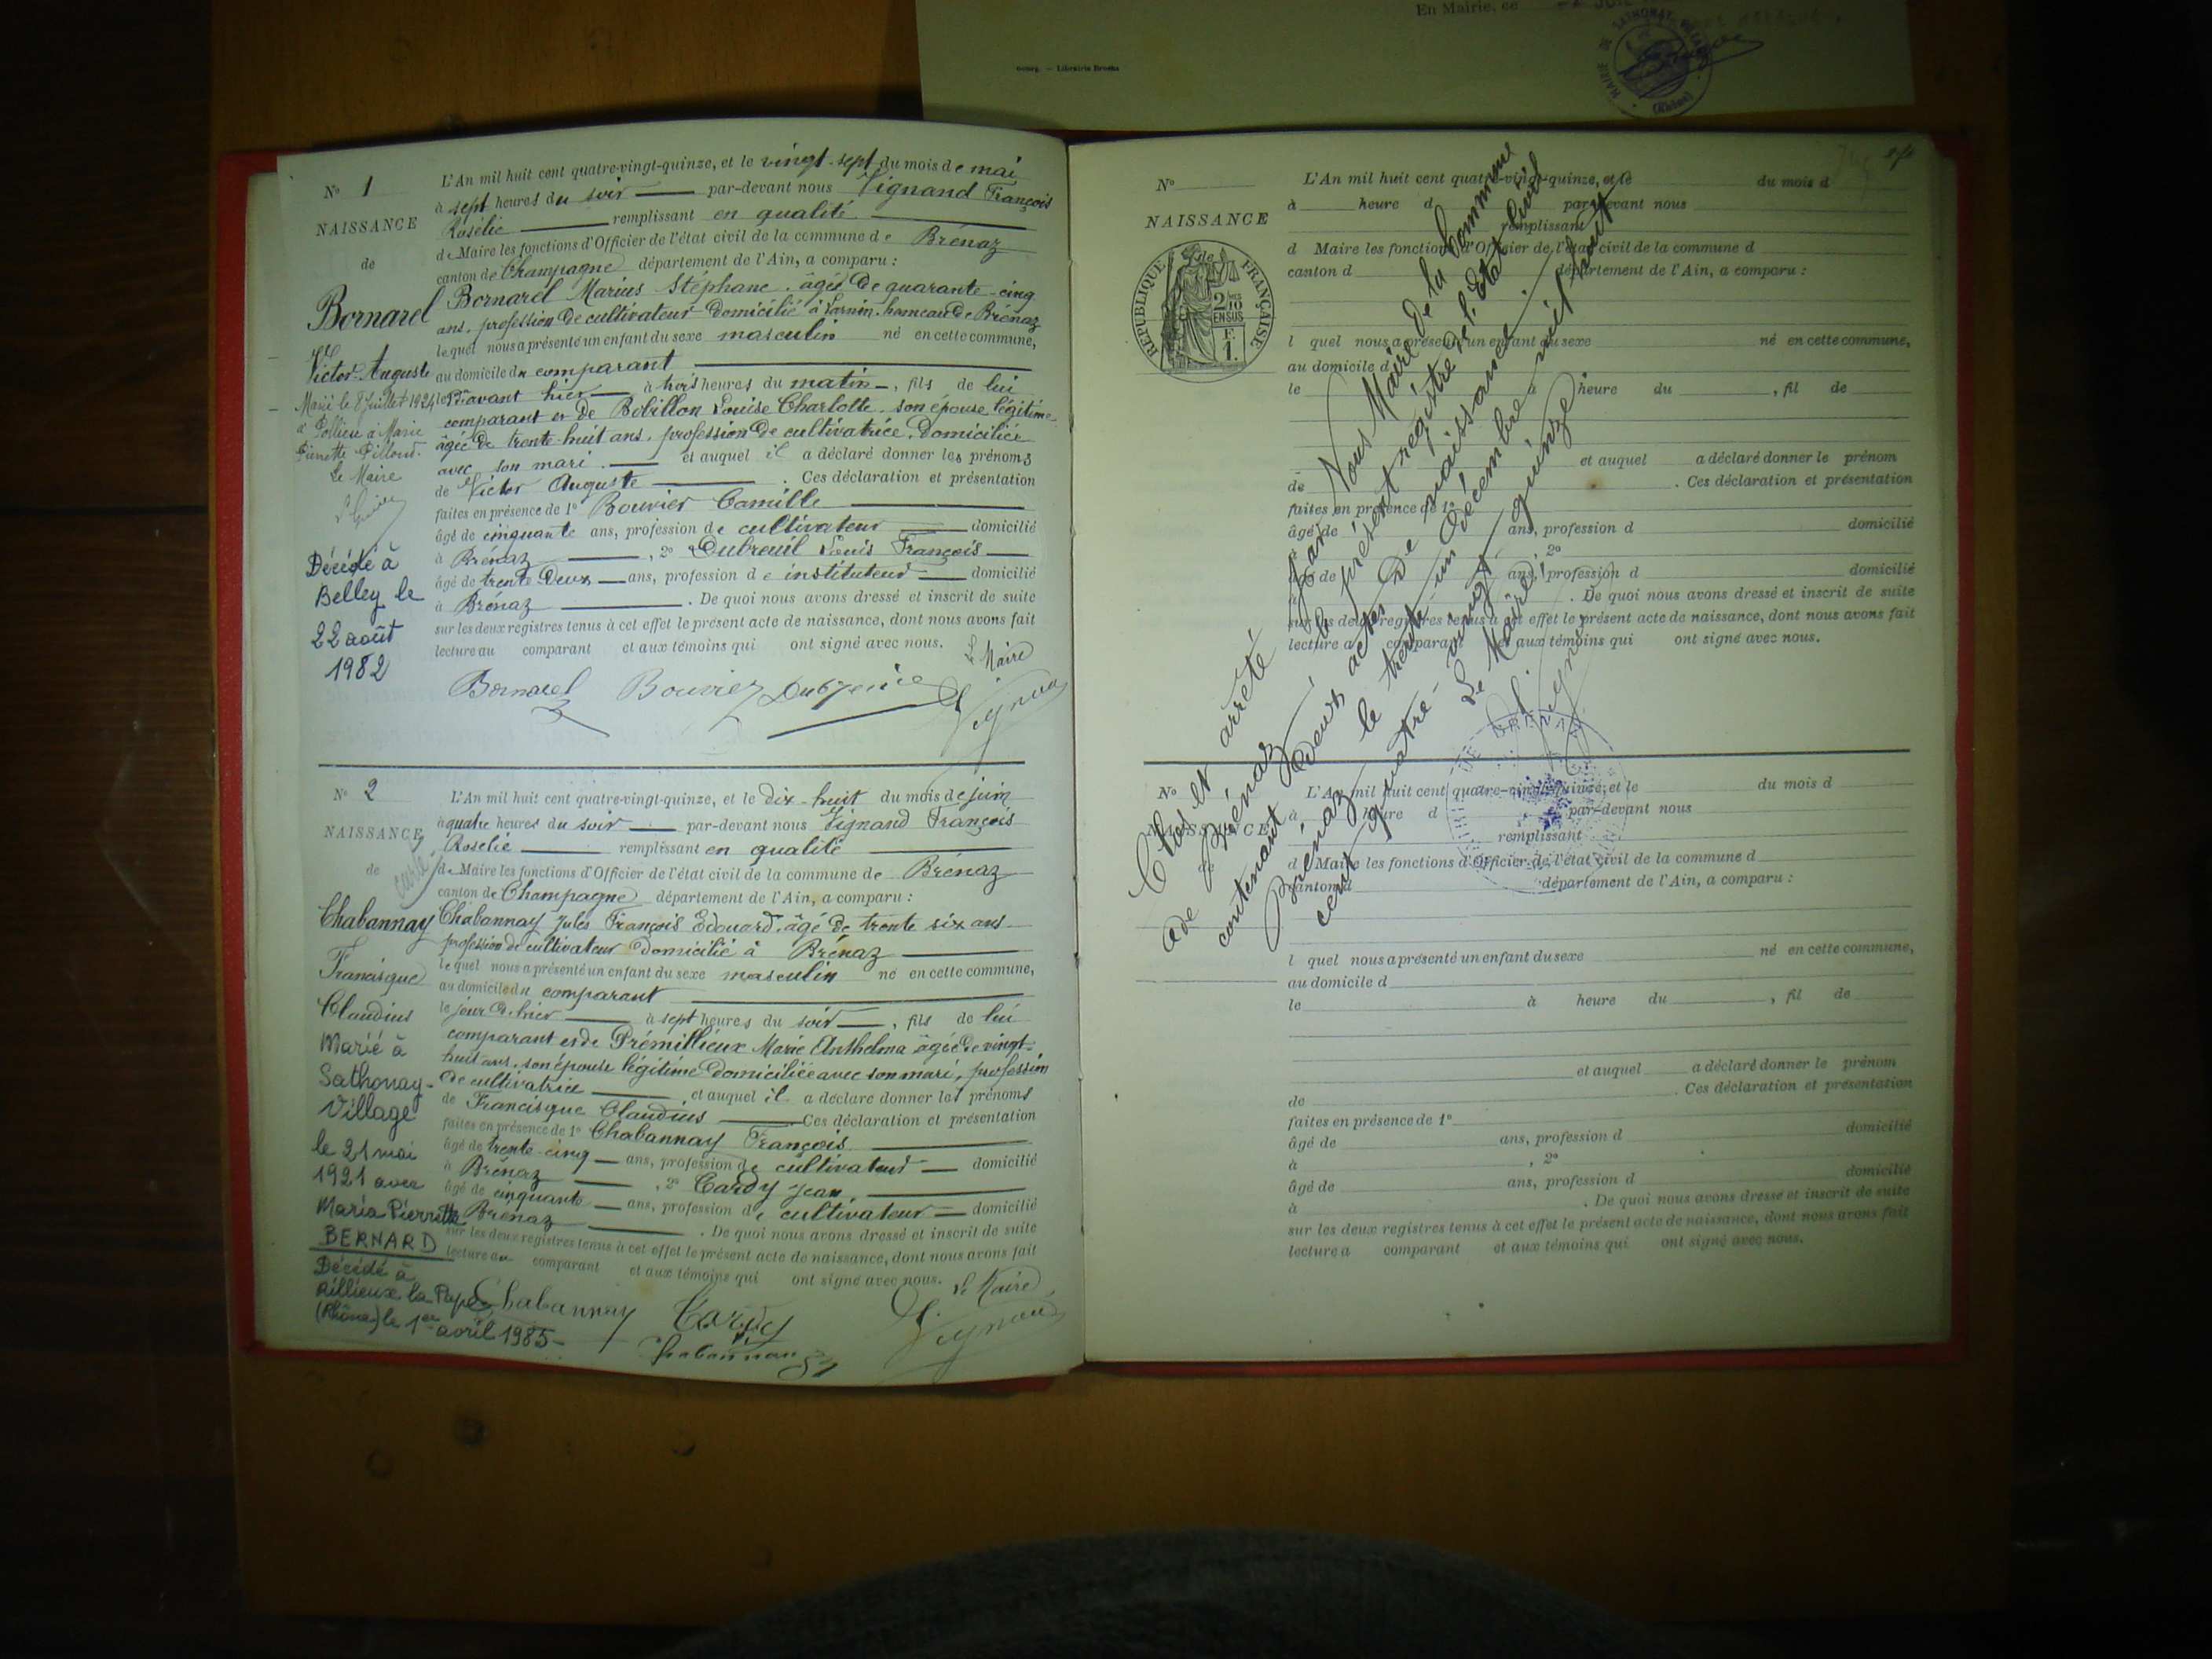 En Mairie, ce
Bourg. — Librairie Brochs
MAIRIE DE SATHONAY-VILLAGE
(Rhône)
N° 1
NAISSANCE
de
Bornarel
Victor Auguste
Marié le 8 juillet 1924
à Pollieu à Marie
Pierrette Pilloud.
Le Maire
Décédé à
Belley le
22 août
1982
L'An mil huit cent quatre-vingt-quinze, et le vingt-sept du mois de mai
à sept heures du soir par-devant nous Vignand François
Roselie remplissant en qualité
de Maire les fonctions d'Officier de l'état civil de la commune de Brénaz
canton de Champagne département de l'Ain, a comparu :
Bornarel Marius Stéphane, âgé de quarante-cinq
ans, profession de cultivateur domicilié à hameau de Brénaz
lequel nous a présenté un enfant du sexe masculin né en cette commune,
au domicile du comparant
le avant hier à trois heures du matin, fils de lui
comparant et de Bobillon Louise Charlotte, son épouse légitime
âgée de trente-huit ans, profession de cultivatrice, domiciliée
avec son mari. et auquel il a déclaré donner les prénoms
de Victor Auguste . Ces déclaration et présentation
faites en présence de 1° Bouvier Camille
âgé de cinquante ans, profession de cultivateur domicilié
à Brénaz , 2° Dubreuil Louis François
âgé de trente deux ans, profession de instituteur domicilié
à Brénaz . De quoi nous avons dressé et inscrit de suite
sur les deux registres tenus à cet effet le présent acte de naissance, dont nous avons fait
lecture au comparant et aux témoins qui ont signé avec nous.
Le Maire
Bornarel Bouvier Dubreuil
Vignand
N° 2
NAISSANCE
de
Chabannay
Francisque
Claudius
Marié à
Sathonay-
Village
le 21 mai
1921 avec
Maria Pierrette
BERNARD
Décédé à
Rillieux la Pape
(Rhône) le 1er avril 1985-
L'An mil huit cent quatre-vingt-quinze, et le dix-huit du mois de juin
à quatre heures du soir par-devant nous Vignand François
Roselie remplissant en qualité
de Maire les fonctions d'Officier de l'état civil de la commune de Brénaz
canton de Champagne département de l'Ain, a comparu :
Chabannay Jules François Edouard, âgé de trente six ans
profession de cultivateur domicilié à Brénaz
lequel nous a présenté un enfant du sexe masculin né en cette commune,
au domicile du comparant
le jour d'hier à sept heures du soir, fils de lui
comparant et de Prémillieux Marie Anthelma âgée de vingt-
huit ans, son épouse légitime domiciliée avec son mari, profession
de cultivatrice et auquel il a déclaré donner les prénoms
de Francisque Claudius Ces déclaration et présentation
faites en présence de 1° Chabannay François
âgé de trente-cinq ans, profession de cultivateur domicilié
à Brénaz , 2° Tardy Jean,
âgé de cinquante ans, profession de cultivateur domicilié
Brénaz . De quoi nous avons dressé et inscrit de suite
sur les deux registres tenus à cet effet le présent acte de naissance, dont nous avons fait
lecture au comparant et aux témoins qui ont signé avec nous.
Le Maire
Chabannay Tardy
Vignand
Chabannay
N°
NAISSANCE
RÉPUBLIQUE FRANÇAISE
2/10 EN SUS
F. 1.
L'An mil huit cent quatre-vingt-quinze, et le du mois d
à heure d par-devant nous
remplissant
d Maire les fonctions d'Officier de l'état civil de la commune d
canton d département de l'Ain, a comparu :
l quel nous a présenté un enfant du sexe né en cette commune,
au domicile d
le à heure du , fil de
et auquel a déclaré donner le prénom
de . Ces déclaration et présentation
faites en présence de 1°
âgé de ans, profession d domicilié
à , 2°
âgé de ans, profession d domicilié
à . De quoi nous avons dressé et inscrit de suite
sur les deux registres tenus à cet effet le présent acte de naissance, dont nous avons fait
lecture a comparant et aux témoins qui ont signé avec nous.
Clos et arrêté par Nous Maire de la Commune
de Brénaz le présent registre de l'Etat civil
contenant deux actes de naissance.
Brénaz le trente-un décembre mil huit
cent quatre vingt quinze
Le Maire,
N°
NAISSANCE
L'An mil huit cent quatre-vingt-quinze, et le du mois d
à heure d par-devant nous
remplissant
d Maire les fonctions d'Officier de l'état civil de la commune d
canton d département de l'Ain, a comparu :
l quel nous a présenté un enfant du sexe né en cette commune,
au domicile d
le à heure du , fil de
et auquel a déclaré donner le prénom
de . Ces déclaration et présentation
faites en présence de 1°
âgé de ans, profession d domicilié
à , 2°
âgé de ans, profession d domicilié
à . De quoi nous avons dressé et inscrit de suite
sur les deux registres tenus à cet effet le présent acte de naissance, dont nous avons fait
lecture a comparant et aux témoins qui ont signé avec nous.